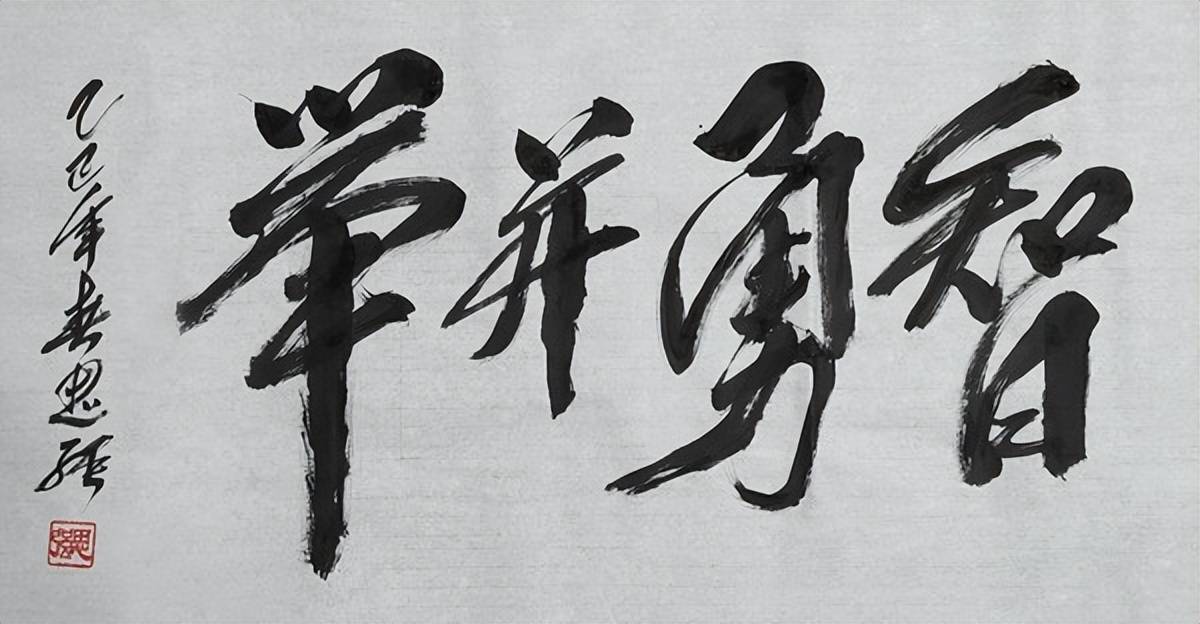 智勇并举
乙巳年春思强
思强